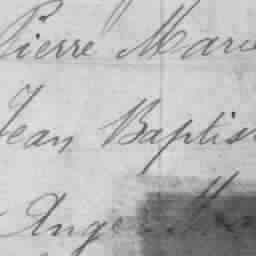 Pierre Marie
Jean Baptis
Ange